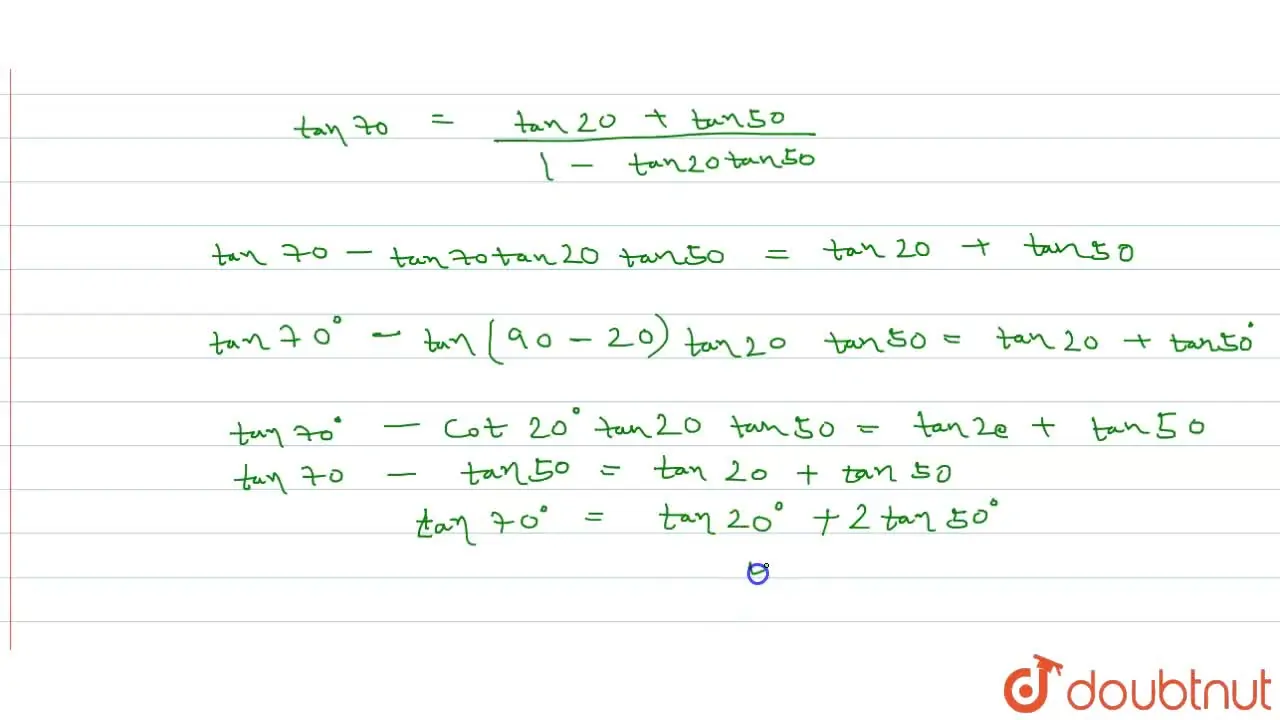 tan 70 = tan 20 + tan 50 / 1 - tan 20 tan 50
tan 70 - tan 70 tan 20 tan 50 = tan 20 + tan 50
tan 70° - tan (90 - 20) tan 20 tan 50 = tan 20 + tan 50°
tan 70° - cot 20° tan 20 tan 50 = tan 20 + tan 50
tan 70 - tan 50 = tan 20 + tan 50
tan 70° = tan 20° + 2 tan 50°
doubtnut